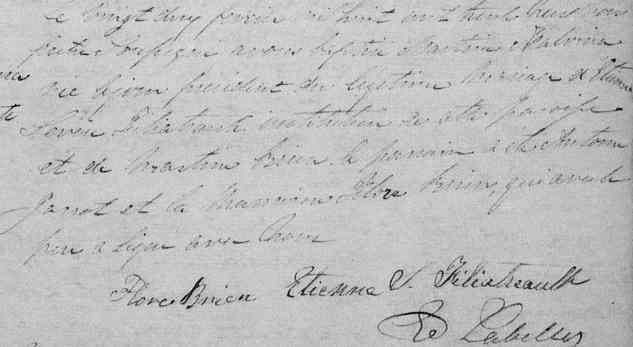 Le vingt deux février mil huit cent trente trois nous
prêtre soussigné avons baptisé Martine Malvina
née le jour précédent du légitime mariage d'Etienne
Filiatrault instituteur de cette paroisse
et de Martine Brien le parrain a été Antoine
et la marraine Flore Brien qui avec le
père a signé avec nous
Flore Brien Etienne S. Filiatreault
Labelle